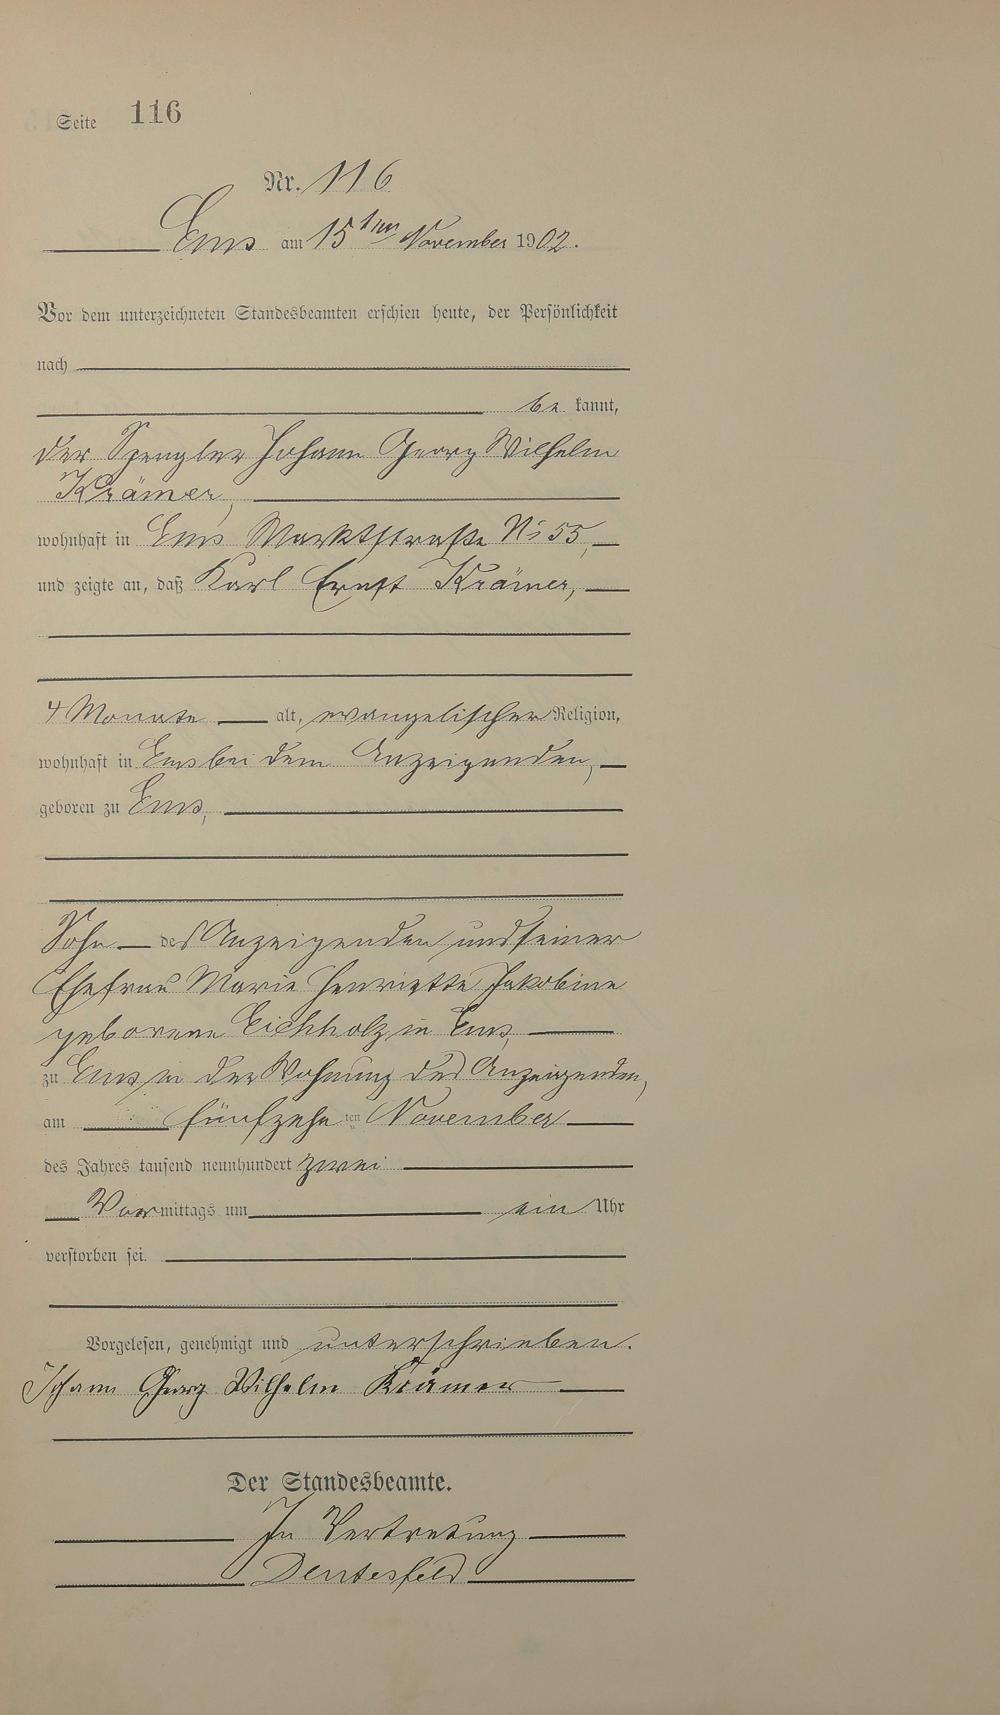 Seite 116
Nr. 116
Ems am 15ten November 1902.
Vor dem unterzeichneten Standesbeamten erschien heute, der Persönlichkeit
nach
be kannt,
der Spengler Johann Georg Wilhelm
Krämer,
wohnhaft in Ems Marktstraße No 55,
und zeigte an, daß Karl Ernst Krämer,
4 Monate alt, evangelischer Religion,
wohnhaft in Ems bei dem Anzeigenden,
geboren zu Ems,
Sohn des Anzeigenden und seiner
Ehefrau Marie Henriette Jakobine
geborene Eichholz in Ems,
zu Ems in der Wohnung des Anzeigenden,
am fünfzehnten November
des Jahres tausend neunhundert zwei
Vormittags um ein Uhr
verstorben sei.
Vorgelesen, genehmigt und unterschrieben.
Johann Georg Wilhelm Krämer
Der Standesbeamte.
In Vertretung